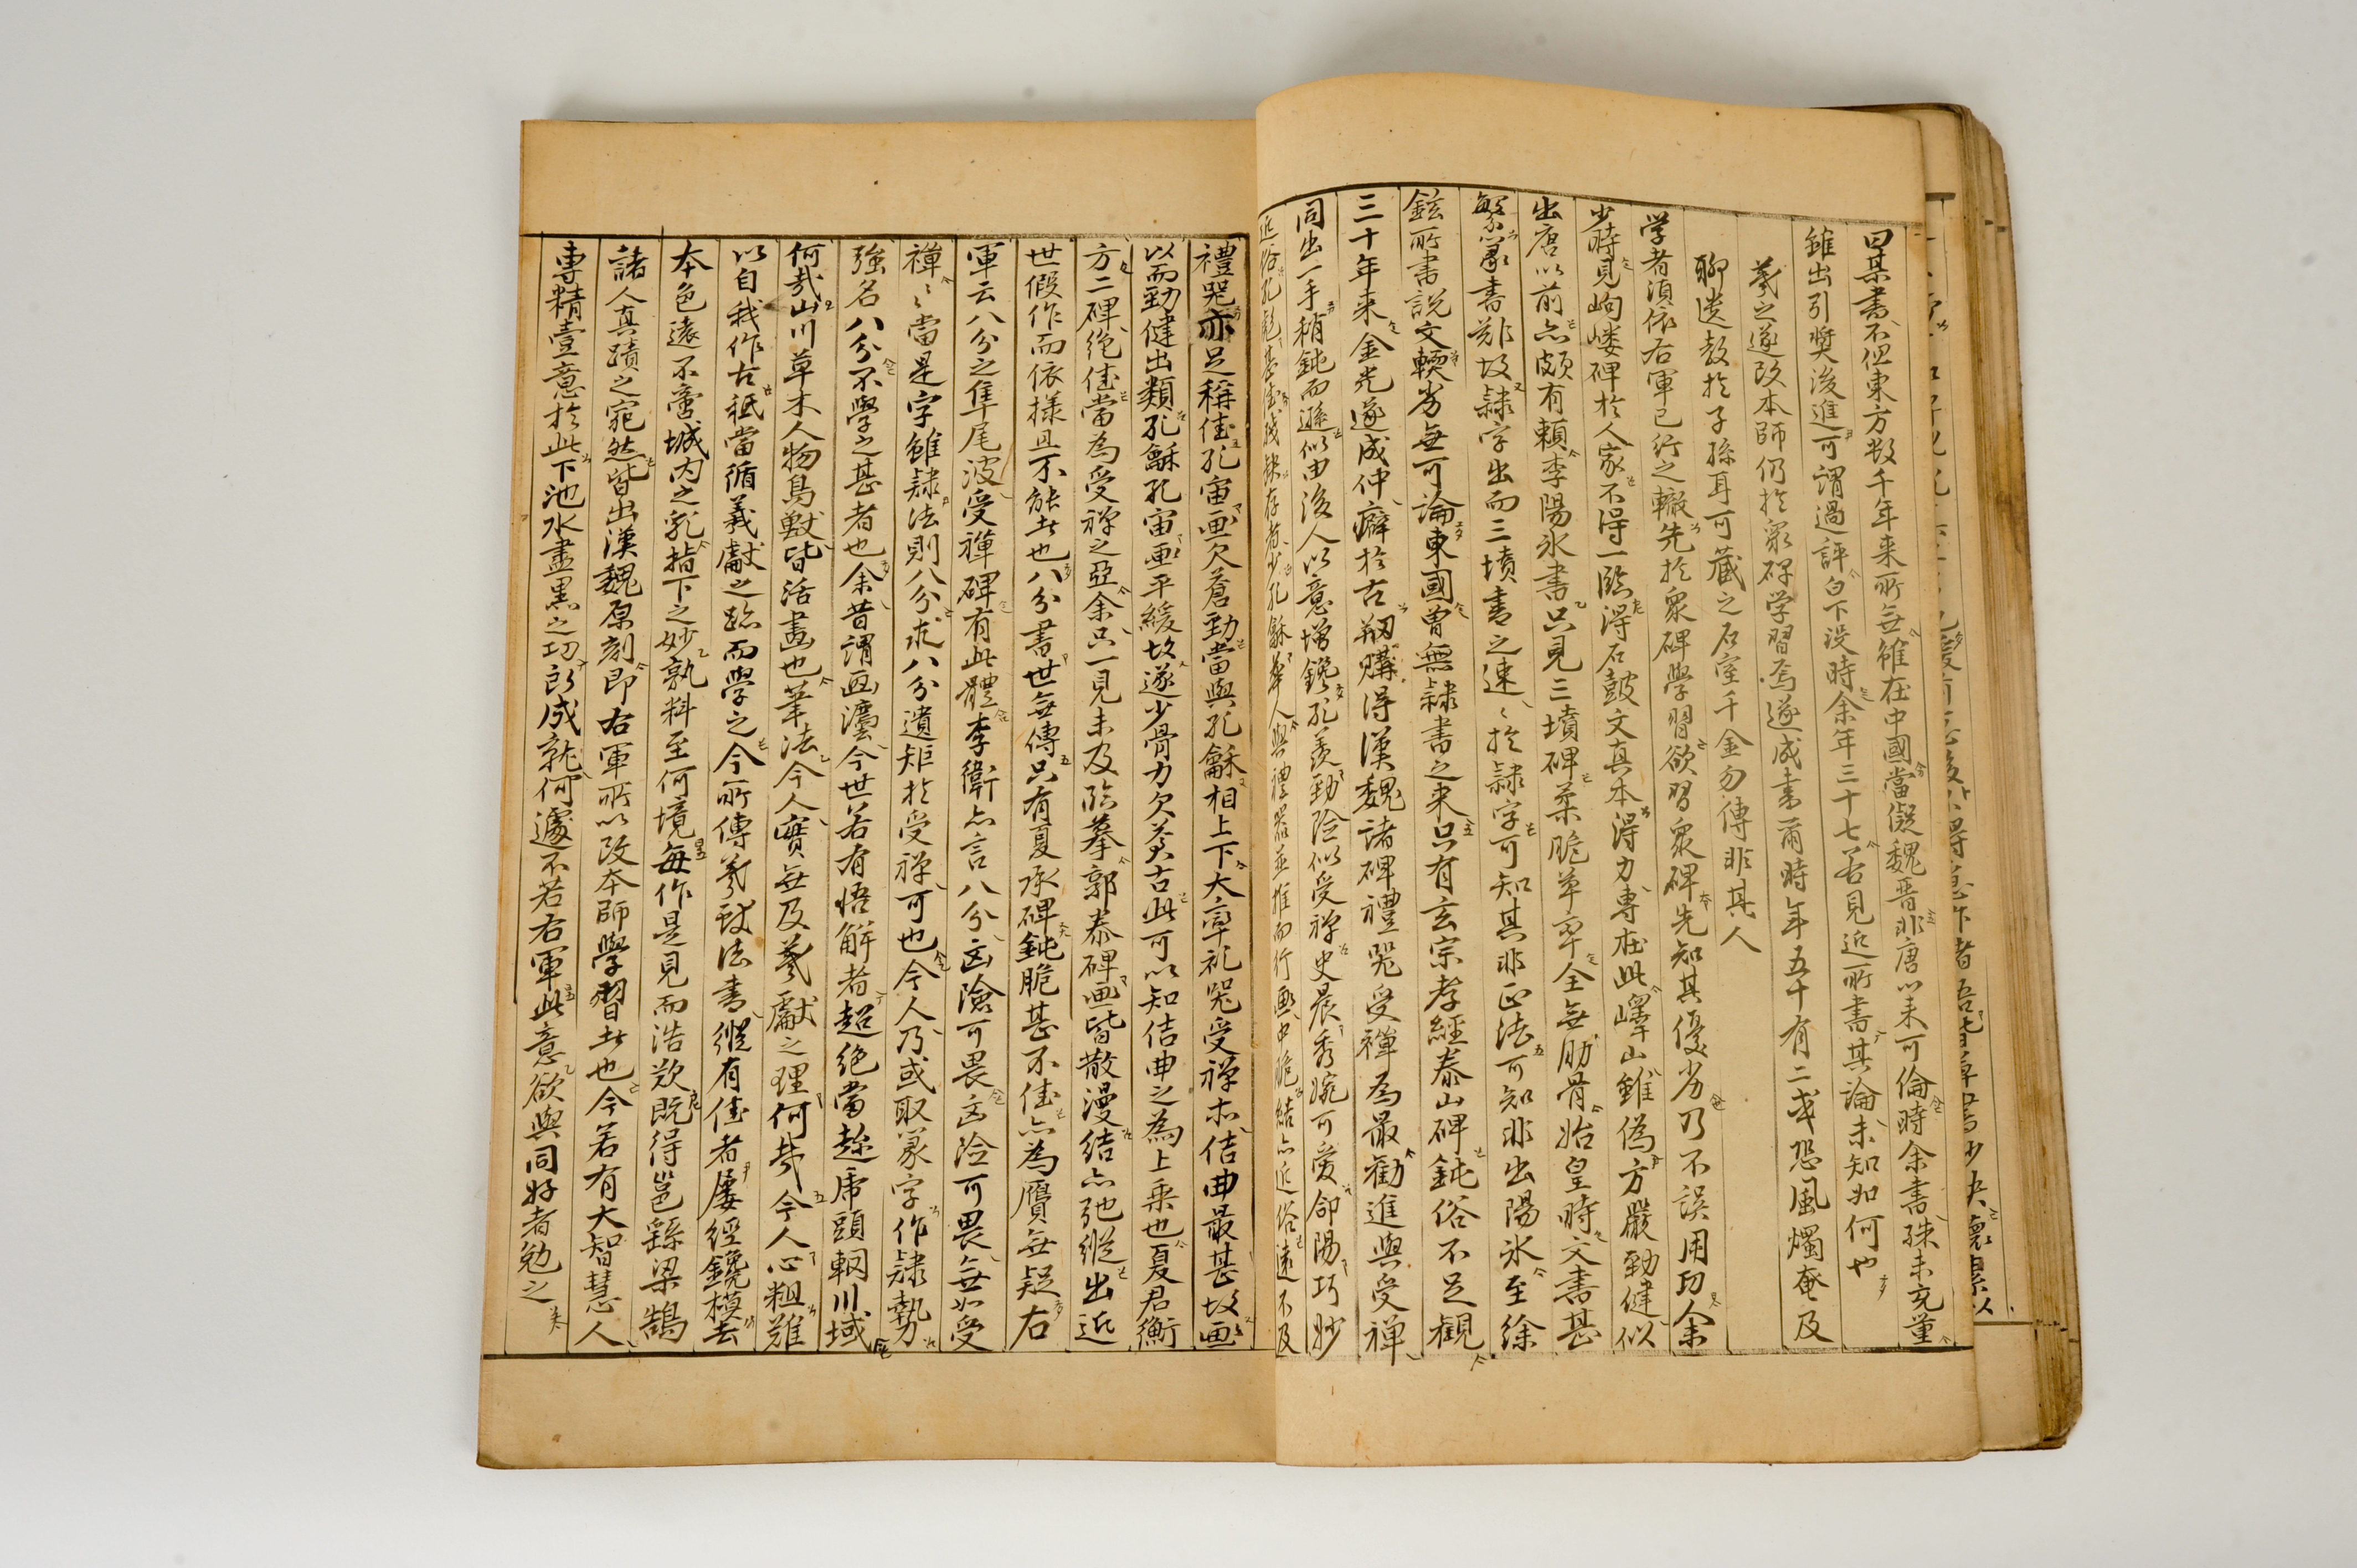 曰某書不但東方數千年来所無雖在中國當儗魏晋非唐以来可倫時余書殊未充量
雖出引奬後進可謂過評白下没時余年三十七若見近所書其論未知如何也
羲之遂改本師仍於衆碑学習焉遂成書爾時年五十有二或恐風燭奄及
聊遺教於子孫耳可藏之石室千金勿傳非其人
学者湏依右軍已行之轍先於衆碑學習欲習衆碑先知其優劣乃不誤用功余
少時見岣嶁碑於人家不得一臨得石鼓文真本得力專在此嶧山雖偽方嚴勁健似
出唐以前亦頗有頼李陽氷書只見三墳碑柔脆草率全無肋骨始皇時文書甚
繁篆書難故隷字出而三墳書之速〻於隷字可知其非正法可知非出陽氷至徐
鉉所書説文輭劣無可論東國曾無隷書之来只有玄宗孝經泰山碑鈍俗不足觀
三十年来金光遂成仲癖於古剏購得漢魏諸碑禮器受禪為最勸進與受禅
同出一手稍鈍而遜似由後人以意增鑱孔羨勁险似受禅史晨秀婉可愛郃陽巧妙
近俗孔彪甚佳残缺存者少孔龢華人與禮器並推而行画中脆結亦近俗遠不及
禮器亦足稱佳孔宙画欠蒼勁當與孔龢相上下大率礼器受禅亦佶曲最甚故画
以而勁健出類孔龢孔宙画平緩故遂少骨力欠蒼古此可以知佶曲之為上乘也夏君衡
方二碑绝佳當為受禅之亞余只一見未及臨摹郭泰碑画皆散漫结亦弛縱出近
世假作而依様且不能者也八分書世無傳只有夏承碑鈍脆甚不佳亦為贋無疑右
軍云八分之隼尾波受禅碑有此體李衞亦言八分凶險可畏凶险可畏無如受
禅〻當是字雖隷法則八分求八分遺矩於受禅可也今人乃或取篆字作隷勢
強名八分不學之甚者也余昔謂画灋今世若有悟解者超绝當趂虎頭輞川域
何哉山川草木人物鳥獸皆活畵也筆法今人實無及羲獻之理何哉今人心粗雖
以自我作古秪當循羲獻之跡而學之今所傳羲獻法書縱有佳者屡經鐫模去
本色遠不啻城内之乳指下之妙孰料至何境每作是見而浩歎既得邕繇梁鵠
諸人真蹟之宛然皆出漢魏原刻即右軍所以改本師學習者也今若有大智慧人
專精壹意於此下池水盡黒之功所成就何遽不若右軍此意欲與同好者勉之